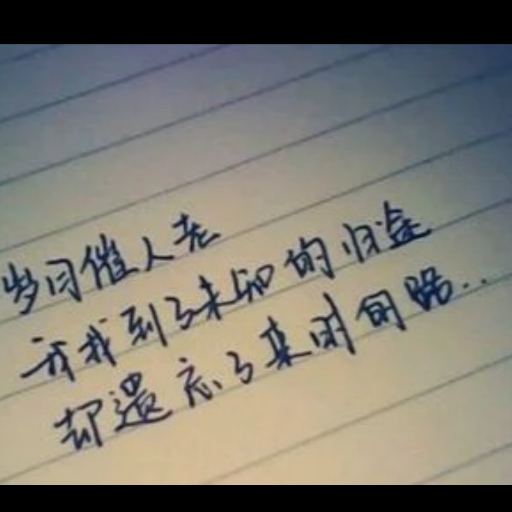 岁月催人老
寻找到了未知的归途
却遗忘了来时的路..